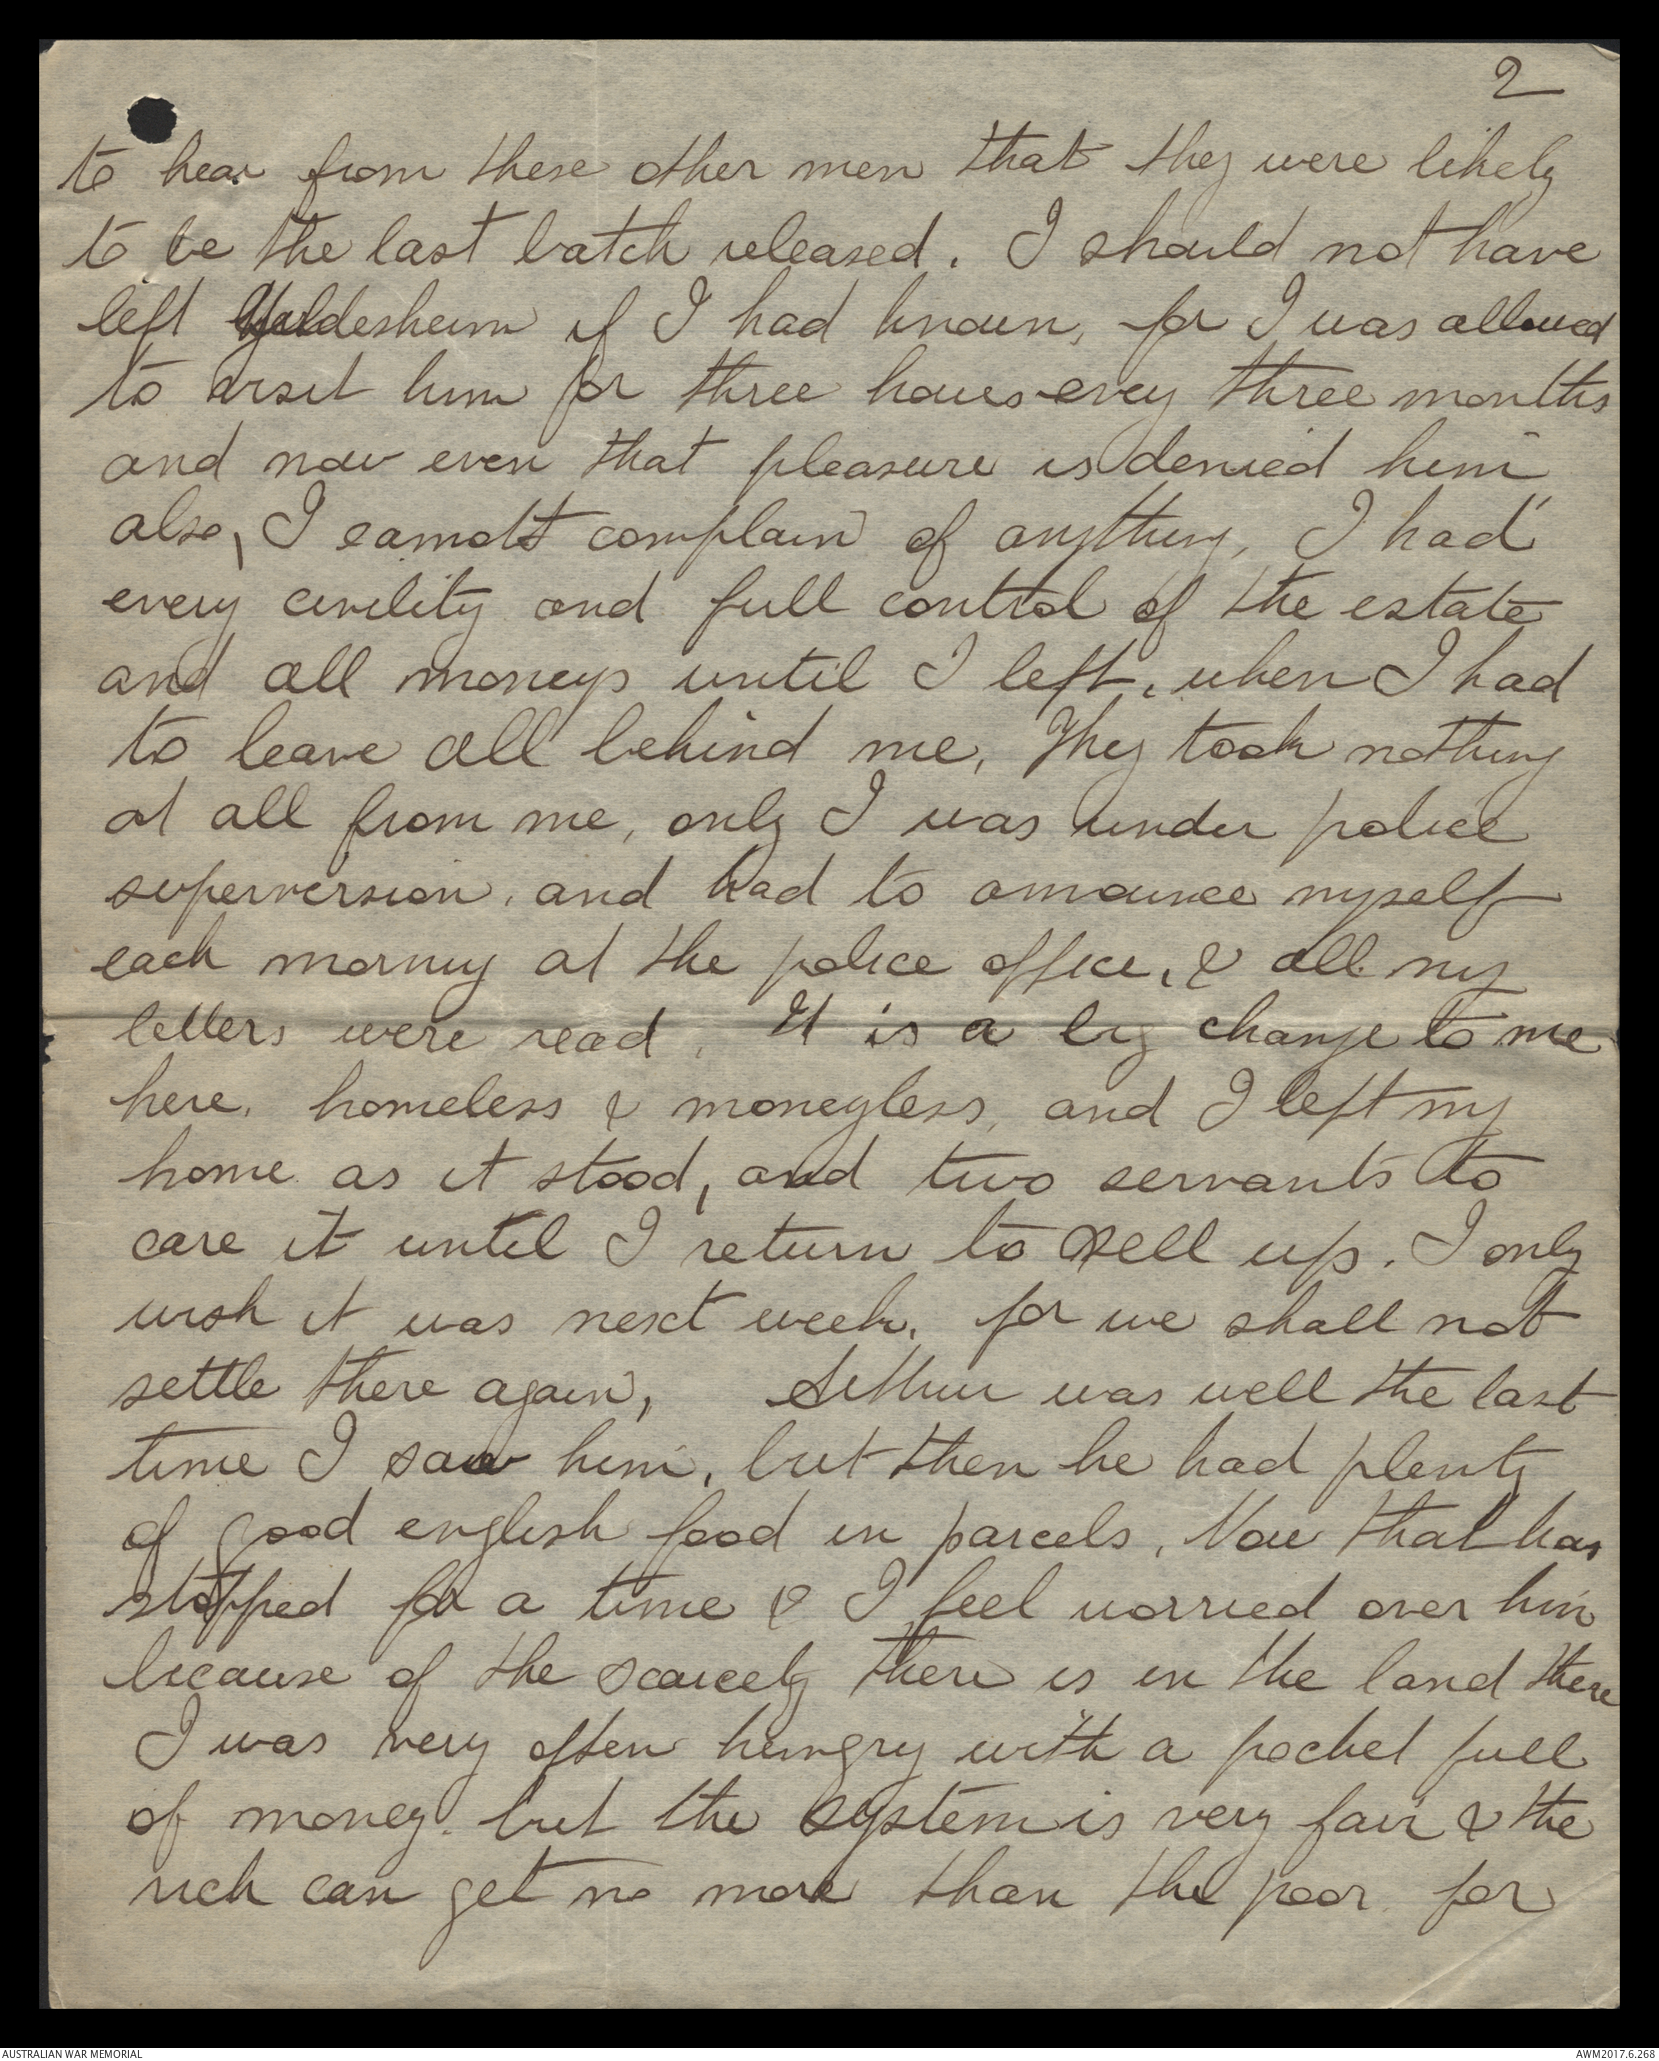 2
to hear from these other men that they were likely
to be the last batch released. I should not have
left Hildesheim if I had known, for I was allowed
to visit him for three hours every three months
and now even that pleasure is denied him
also, I cannot complain of anything, I had
every civility and full control of the estate
and all moneys until I left, when I had
to leave all behind me, They took nothing
at all from me, only I was under police
superversion, and had to announce myself
each morning at the police office, & all my
letters were read. It is a big change to me
here, homeless & moneyless, and I left my
home as it stood, and two servants to
care it until I return to sell up. I only
wish it was next week, for we shall not
settle there again, Arthur was well the last
time I saw him, but then he had plenty
of good english food in parcels. Now that has
stopped for a time & I feel worried over him
because of the scarcety there is in the land there
I was very often hungry with a pocket full
of money. but the system is very fair & the
rich can get no more than the poor for
AUSTRALIAN WAR MEMORIAL
AWM2017.6.268